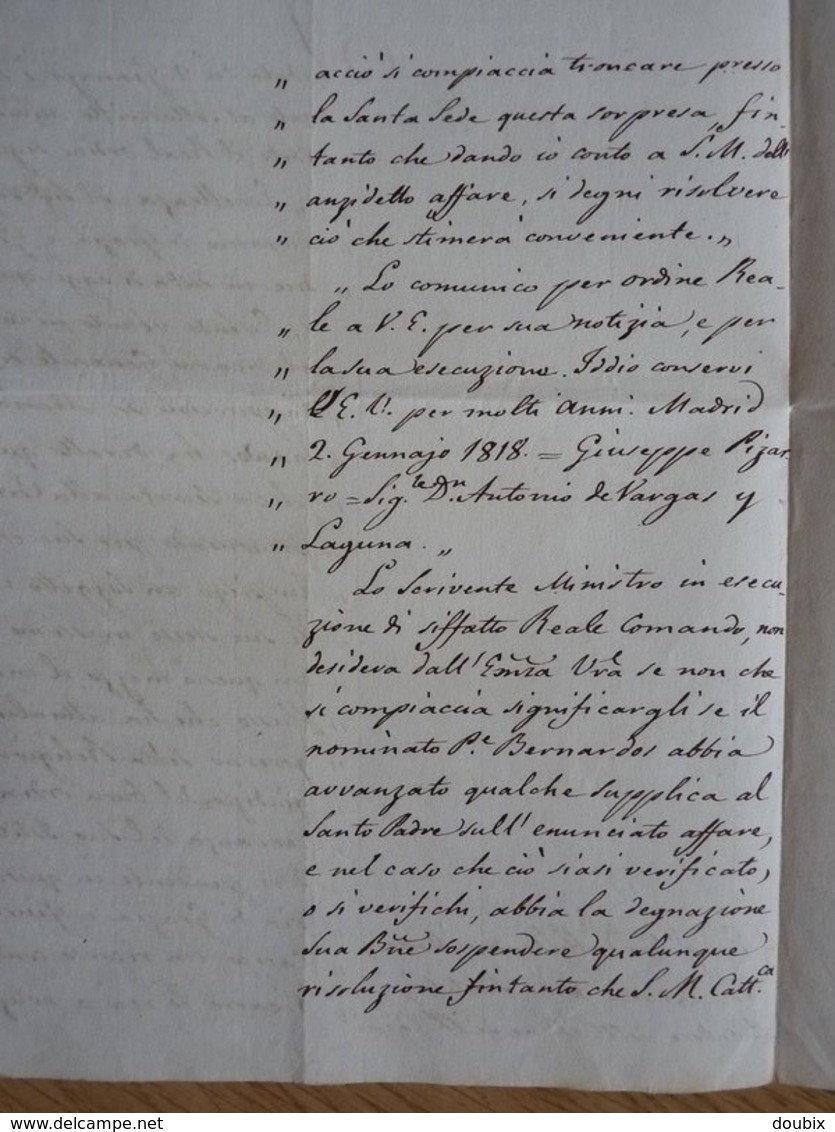 „ acciò si compiaccia troncare presso
„ la Santa Sede questa sorpresa, fin-
„ tanto che dando io conto a S. M. dell'
„ anzidetto affare, si degni risolvere
„ ciò che stimerà conveniente. „
„ Lo comunico per ordine Rea-
„ le a V. E. per sua notizia, e per
„ la sua esecuzione. Iddio conservi
„ l'E. V. per molti anni. Madrid
„ 2. Gennajo 1818. = Giuseppe Pizar-
„ ro = Sig.re Dn. Antonio de Vargas y
„ Laguna. „
Lo Scrivente Ministro in esecu-
zione di siffatto Reale Comando, non
desidera dall' Emza Vra se non che
si compiaccia significargli se il
nominato P.e Bernardos abbia
avvanzato qualche supplica al
Santo Padre sull' enunciato affare,
e nel caso che ciò siasi verificato,
o si verifichi, abbia la degnazione
Sua Bne sospendere qualunque
risoluzione fintanto che S. M. Catt.ca
delcampe.net
doubix